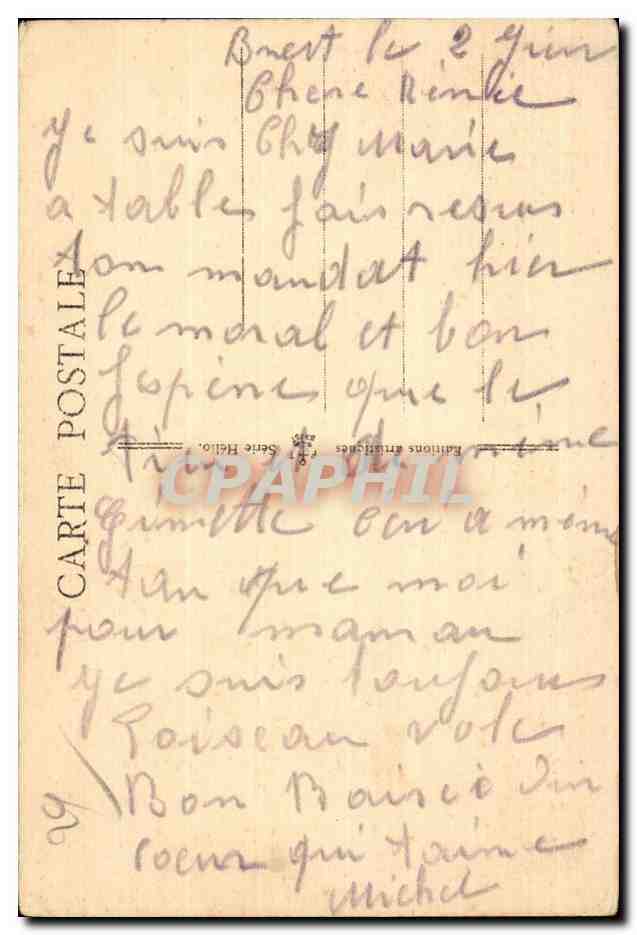 Brest le 2 Juin
Chere Rénée
ye suis Chez Marie
a tables jais resus
ton mandat hier
le moral et bon
jespère que le
tien et de même
Ginette en a même
tan que moi
pour maman
ye suis toujours
Loiseau vole
Bon Baisé d'un
coeur qui taime
Michel
CARTE POSTALE
Editions artistiques
Série Hélio.
CPAPHIL